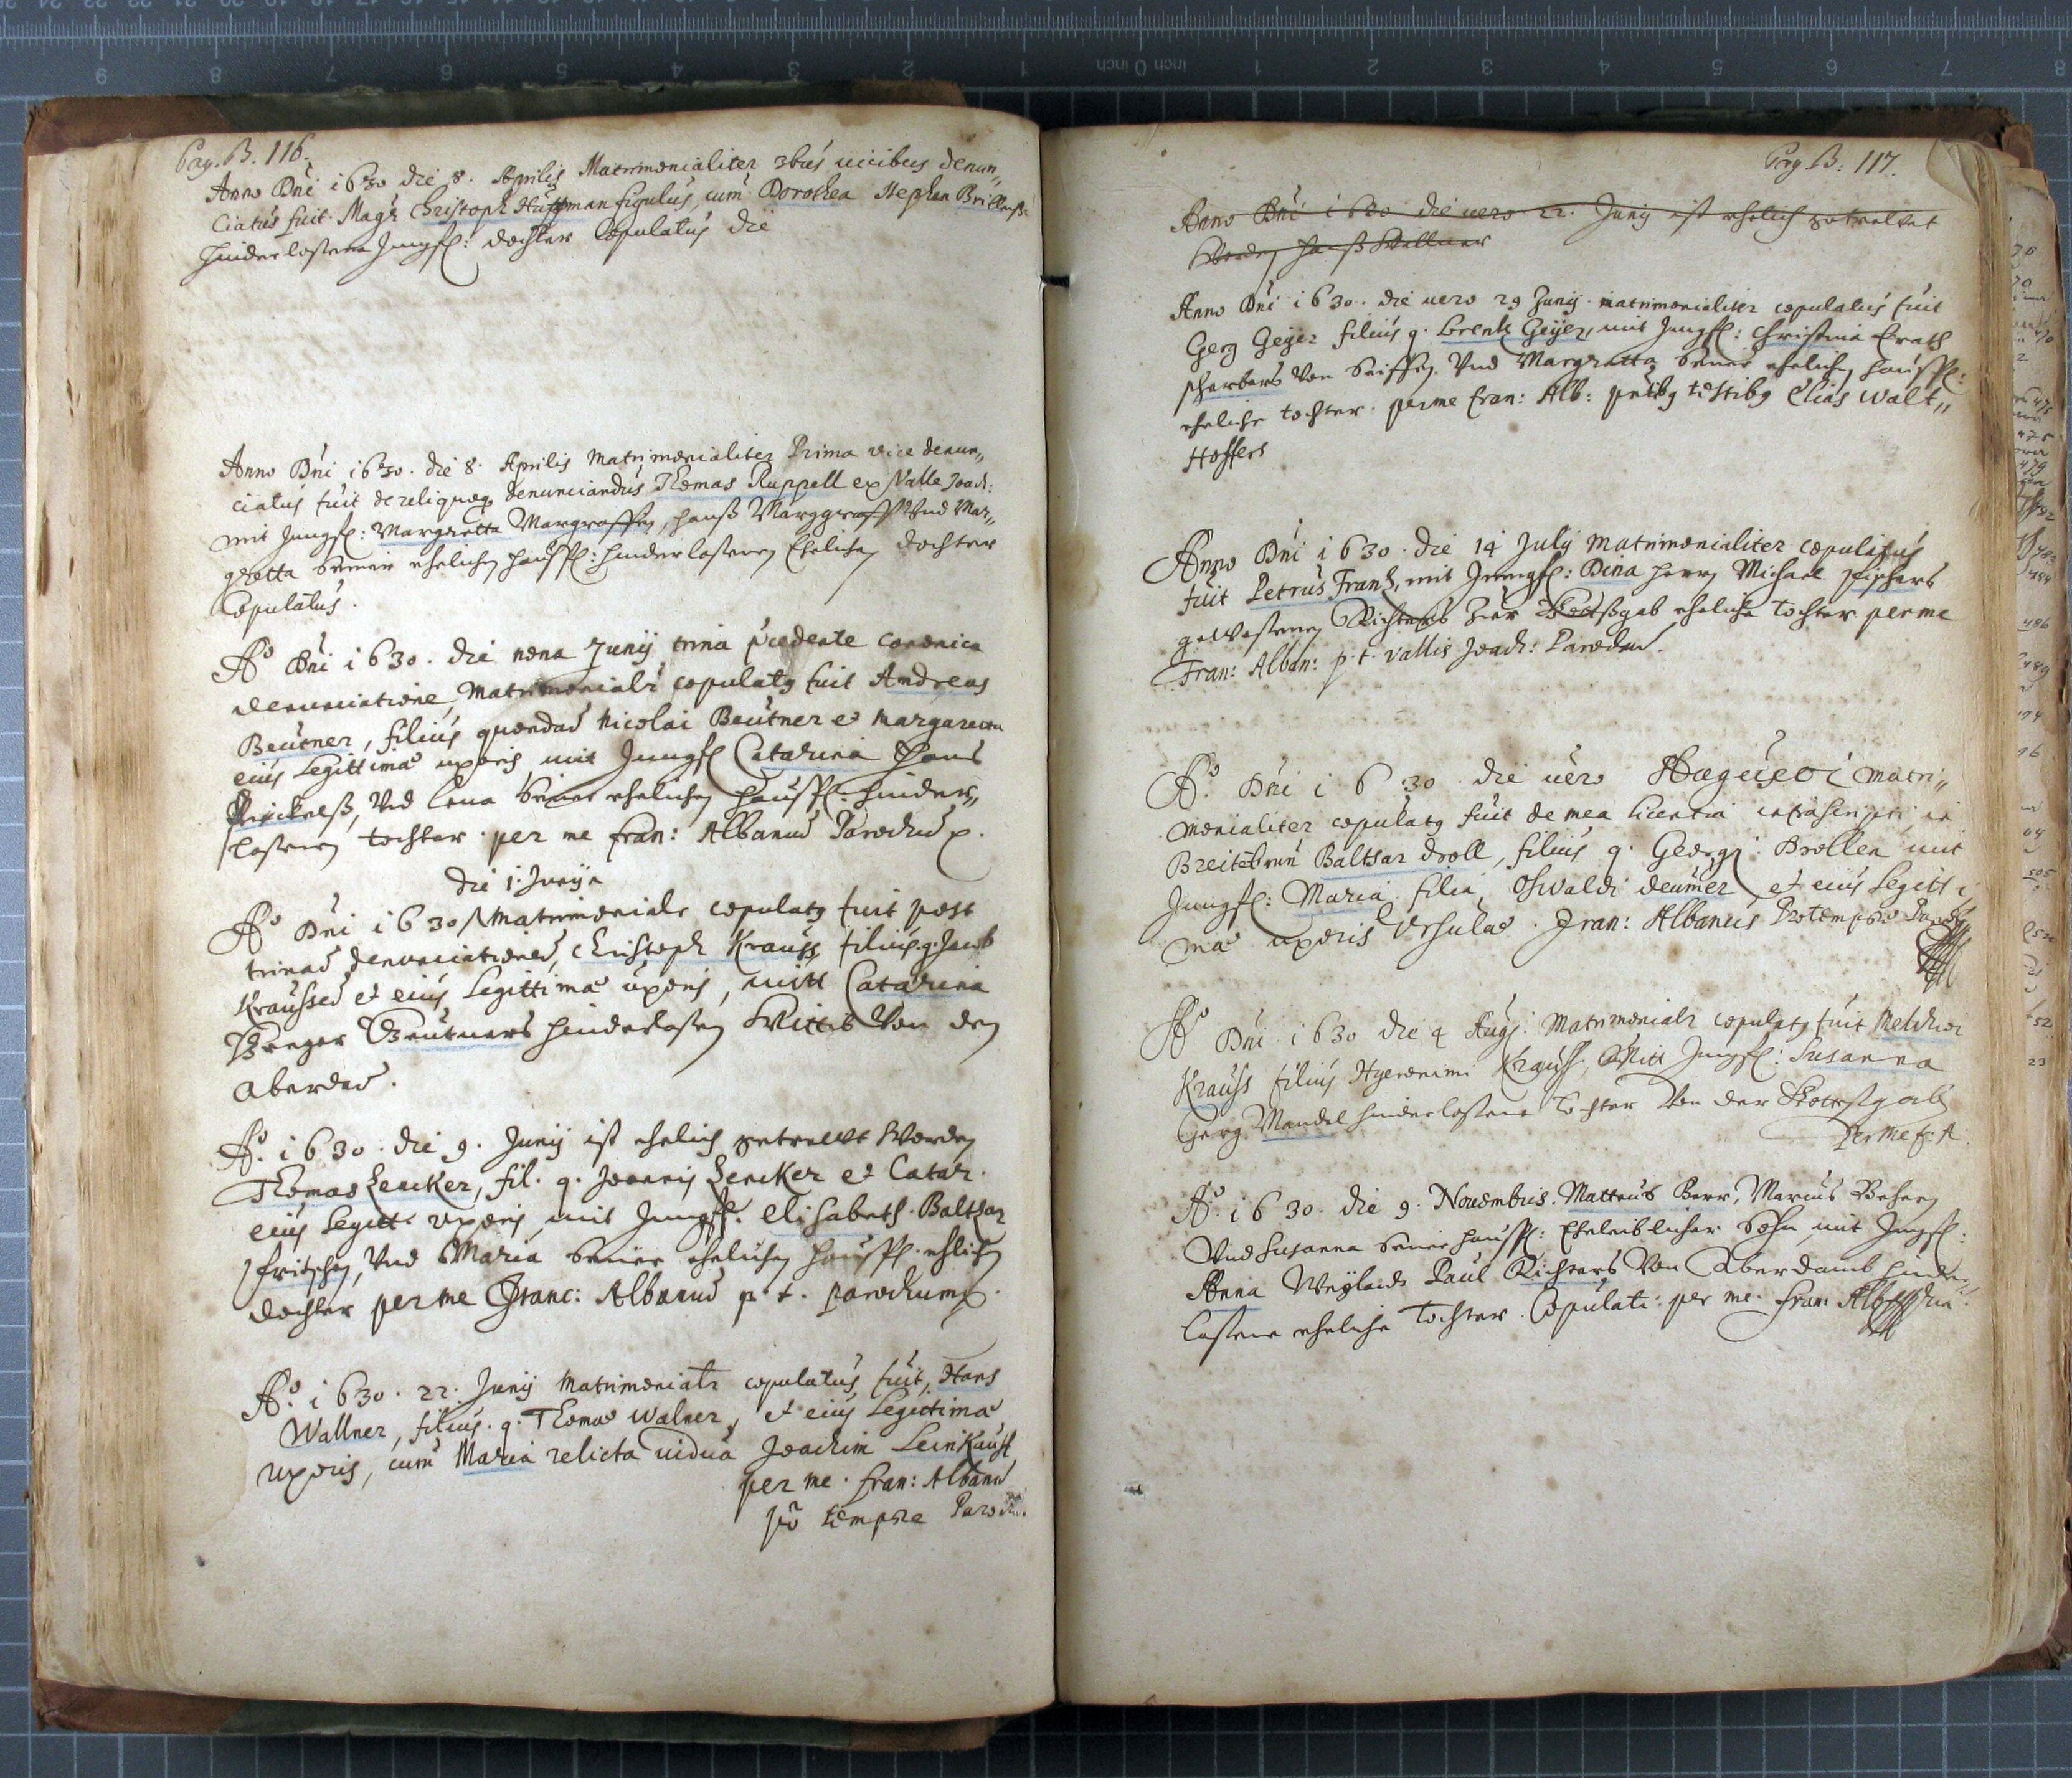 Pag. B. 116.
Anno Dni 1630 die 8. Aprilis Matrimonialiter 3bus vicibus denun„
ciatus fuit Magr Christoph Huffman figulus, cum Dorothea Stephan
hinderlastene Jungf: dochter Copulatus die
Anno Dni 1630. die 8. Aprilis Matrimonialiter Prima vice denun„
ciatus fuit de reliquoq denunciandus Thomas Ruppell ex Valle Joach:
mit Jungf: Margretta Margraffen, Hanß Marggraff Vnd Mar„
gretta Seiner ehelichen haußf: hinderlastenen Ehelichen dochter
Copulatus.
Ao Dni 1630. die nona Junij trina precedente canonica
denunciatione, Matrimonialr copulatq fuit Andreas
Beutner, filius quondad Nicolai Beutner et Margareta
eius Legittima uxoris mit Jungf Catarina Hans
Vnd Lena Seiner ehelichen haußf: hinder„
lastenen tochter. per me Fran: Albanud Parochud
die 1. Junij
Ao Dni 1630 Matrimonialr copulatq fuit post
trinad denunciationed, Christoph Krauss, filius q. Jacob
Kraussed et eius Legittima uxoris, mitt Catarina
Greger Beutners hinderlasten Wittib Von den
Aberdad.
Ao. 1630. die 9. Junij ist ehelich getrewt Worden
Thomas Lencker, fil. q. Joannis Lencker et Catar.
eius Legitt. uxoris, mit Jungf. Elisabeth Baltzar
fritschen, Vnd Maria Seiner ehelichen haußf. ehlichen
dochter per me Franc: Albanud p. t. parochum.
Ao. 1630. 22. Junij Matrimonialr copulatus fuit, Hans
Wallner, filius. q. Thoma Walner, et eius Legittima
uxoris, cum Maria relicta vidua Joachim Leinkauff
per me. Fran: Albanud
pro tempore Paroch.
Pag B: 117.
Anno Dni 1630 die vero 22. Junij ist ehelich getrewet
Worden Hanß Wallner
Anno Dni 1630. die vero 29 Junij. matrimonialiter copulatus fuit
Georg Geijer filius q. Lorentz Geijer, mit Jungf: Christina
Von Seiffen. Vnd Margretta Seiner ehelichen haußf:
eheliche tochter. per me Fran: Alb: pntibq testibq Elias Walt„
Hoffers
Anno Dni 1630. die 14 July Matrimonialiter copulatus
fuit Petrus Frantz, mit Jungf: Dina Herrn Michael fischers
gewestenen Richters Zur eheliche tochter per me
Fran: Alban: p. t. vallis Joach: Parochud.
Ao. Dni 1630. die vero matri„
monialiter copulatq fuit de mea licentia infrascripti in
Breitebrun Baltsar Droll, filius q. Georgi Drollen mit
Jungf: Maria, filia Oswaldi Deumer et eius Legitti
ma uxoris Ursula. Fran: Albanus Protempore
Ao Dni 1630 die 4 Augi: Matrimonialr copulatq fuit Melchior
Krauss filius Hyeronimi Krauss, Mitt Jungf: Susanna
Georg Mandel hinderlastene tochter Von der
Per me f: A:
Ao. 1630. die 9. Nouembris. Matteus Beer, Marcus Beher
Vnd Susanna Seiner haußf: Eheleiblicher Sohn, mit Jungf:
Anna Weyland Paul Richters Von Aberdamb hinder
lastene eheliche tochter. Copulati: per me. Fran: